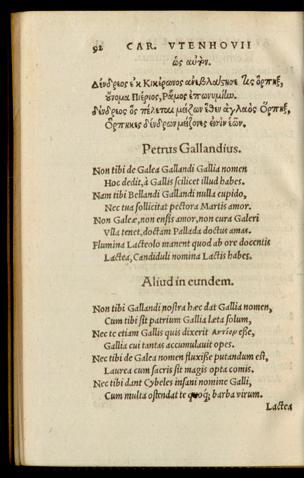 92 CAR. VTENHOVII
ὡς αὔτη.
Δένδρεος ἐκ Κικέρωνος ἀνεβλάστησε
οὔνομα Πιέριος, Ῥᾶμος ἐπωνυμίαν.
δένδρεος ὃς πέλεται μάζων ἕθεν ἀγλαὸς Ὄρπηξ,
Ὄρπηκες δένδρων μάζονες
Petrus Gallandius.
Non tibi de Galea Gallandi Gallia nomen
Hoc dedit, à Gallis scilicet illud habes.
Nam tibi Bellandi Gallandi nulla cupido,
Nec tua sollicitat pectora Martis amor.
Non Galeæ, non ensis amor, non cura Galeri
Vlla tenet, doctam Pallada doctus amas.
Flumina Lacteolo manent quod ab ore docentis
Lactea, Candiduli nomina Lactis habes.
Aliud in eundem.
Non tibi Gallandi nostra hæc dat Gallia nomen,
Cum tibi sit patrium Gallia læta solum,
Nec te etiam Gallis quis dixerit esse,
Gallia cui tantas accumulauit opes.
Nec tibi de Galea nomen fluxisse putandum est,
Laurea cum sacris sit magis opta comis.
Nec tibi dant Cybeles insani nomine Galli,
Cum multa ostendat te quoq; barba virum.
Lactea